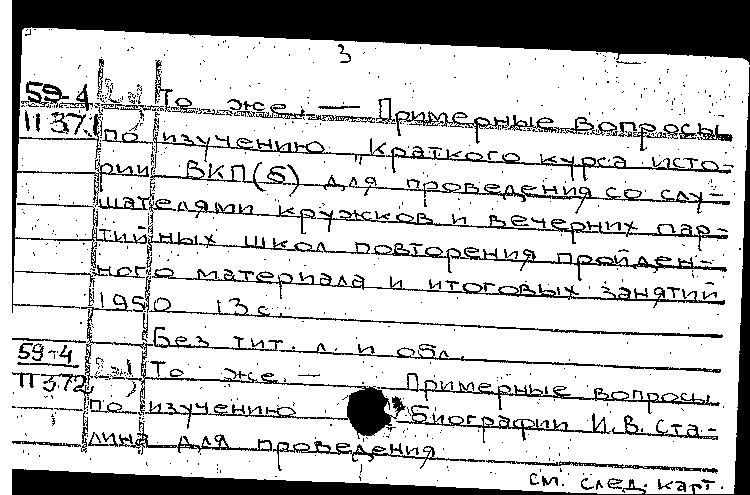 3
59-4 То же. — Примерные вопросы
П 371 по изучению „Краткого курса исто-
рии ВКП(б) для проведения со слу-
шателями кружков и вечерних пар-
тийных школ повторения пройден-
ного материала и итоговых занятий
1950 13 с.
Без тит. л. и обл.
59-4 То же. — Примерные вопросы
П 372 по изучению биографии И.В. Ста-
лина для проведения
см. след. карт.